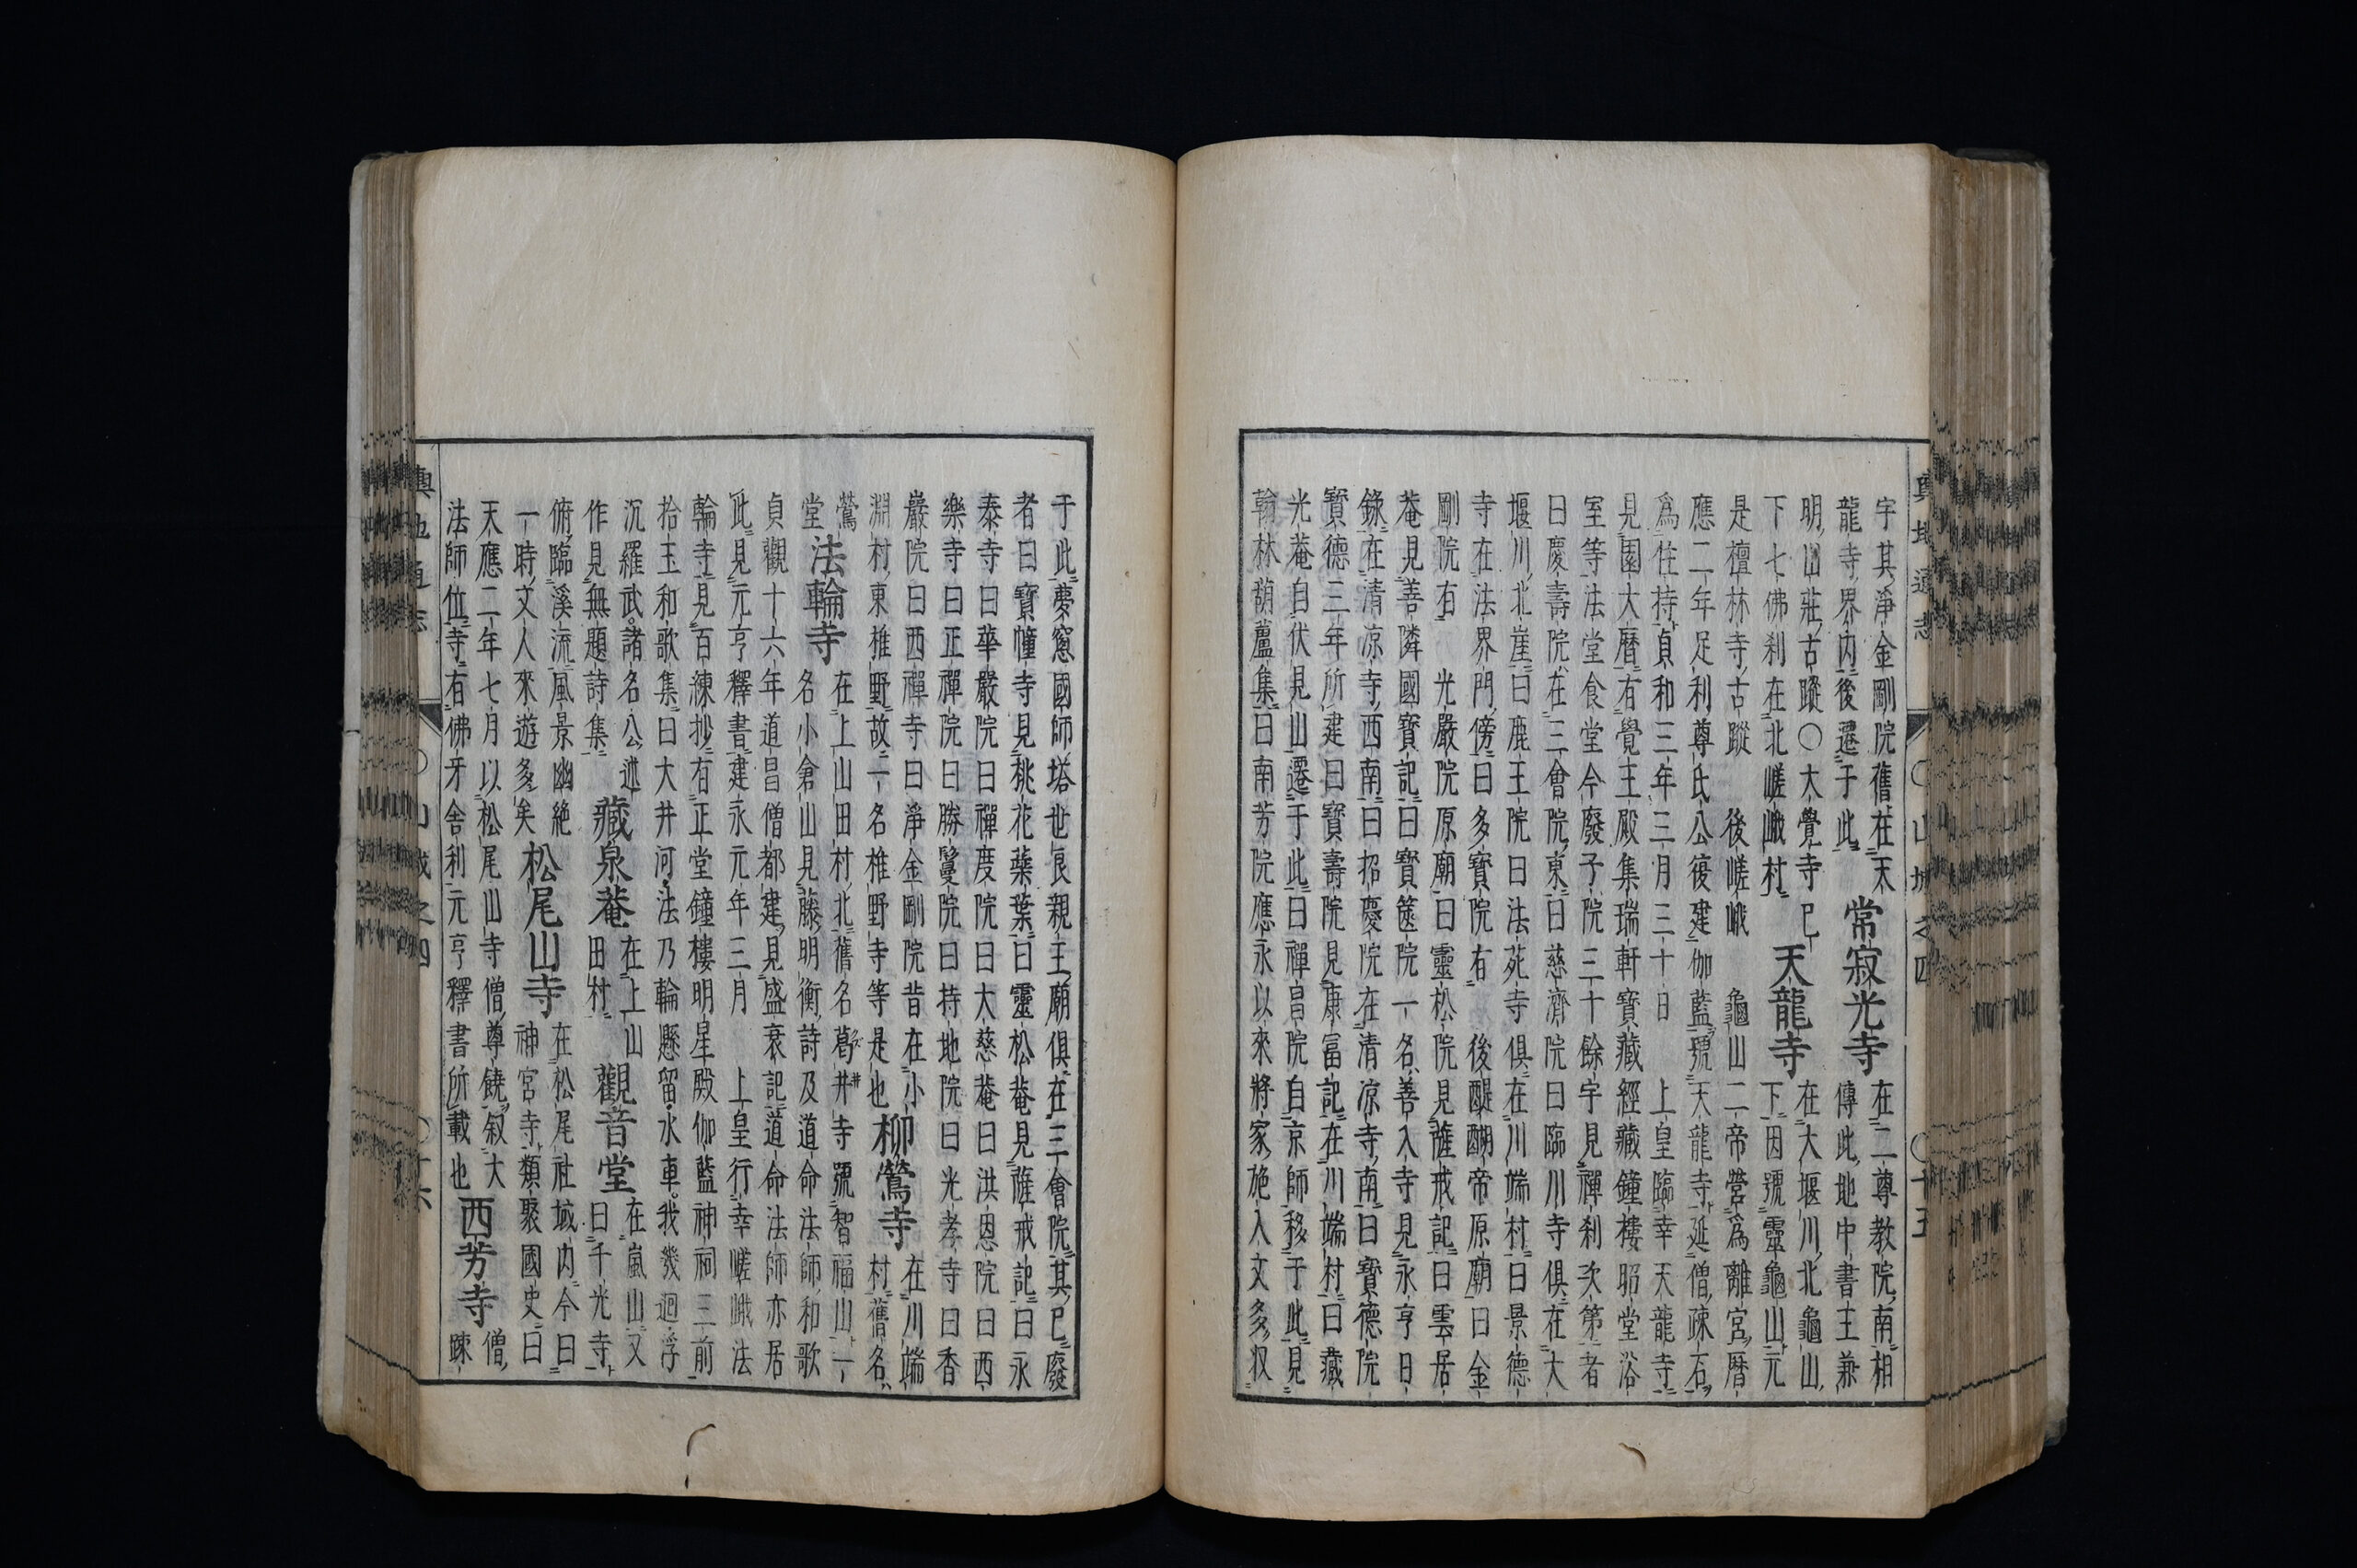 輿地通志 〇山城之四 〇十五
宇其淨金剛院舊在天
龍寺界内後遷于此
常寂光寺
在二尊教院南相
傳此地中書王兼
明山莊古蹤〇大覺寺已
下七佛刹在北嵯峨村
天龍寺
在大堰川北龜山
下因號靈龜山元
是檀林寺古蹤 後嵯峨 龜山二帝營爲離宮暦
應二年足利尊氏公復建伽藍號天龍寺延僧疎石
爲住持貞和三年三月三十日 上皇臨幸天龍寺
見園大暦有覺王殿集瑞軒寶藏經藏鐘樓昭堂浴
室等法堂食堂今廢子院三十餘宇見禪刹次第者
曰慶壽院在三會院東曰慈濟院曰臨川寺俱在大
堰川北崖曰鹿王院曰法苑寺俱在川端村曰景德
寺在法界門傍曰多寳院有 後醍醐帝原廟曰金
剛院有 光嚴院原廟曰靈松院見薩戒記曰雲居
菴見善隣國寶記曰寶篋院一名善入寺見永亨日
錄在清凉寺西南曰招慶院在清凉寺南曰寶德院
寶德三年所建曰寶壽院見康富記在川端村曰藏
光菴自伏見山遷于此曰禪昌院自京師移于此見
翰林葫蘆集曰南芳院應永以來將家施入文多収
于此夢窓國師塔世良親王廟俱在三會院其已廢
者曰寶幢寺見桃花藥葉曰靈松菴見薩戒記曰永
泰寺曰華嚴院曰禪度院曰大慈菴曰洪恩院曰西
樂寺曰正禪院曰勝鬘院曰持地院曰光孝寺曰香
嚴院曰西禪寺曰淨金剛院昔在小
淵村東椎野故一名椎野寺等是也
柳鶯寺
在川端
村舊名
鶯
堂
法輪寺
在上山田村北舊名葛井寺號智福山一
名小倉山見藤明衡詩及道命法師和歌
貞觀十六年道昌僧都建見盛衰記道命法師亦居
此見元亨釋書建永元年三月 上皇行幸嵯峨法
輪寺見百練抄有正堂鐘樓明星殿伽藍神祠三前
拾玉和歌集曰大井河法乃輪懸留水車我幾迴浮
沉羅武諸名公述
作見無題詩集
藏泉菴
在上山
田村
觀音堂
在嵐山又
曰千光寺
俯臨溪流風景幽絶
一時文人來遊多矣
松尾山寺
在松尾社域内今曰
神宮寺類聚國史曰
天應二年七月以松尾山寺僧尊鏡叙大
法師位寺有佛牙舎利元亨釋書所載也
西芳寺
僧
疎
輿地通志 〇山城之四 〇十六